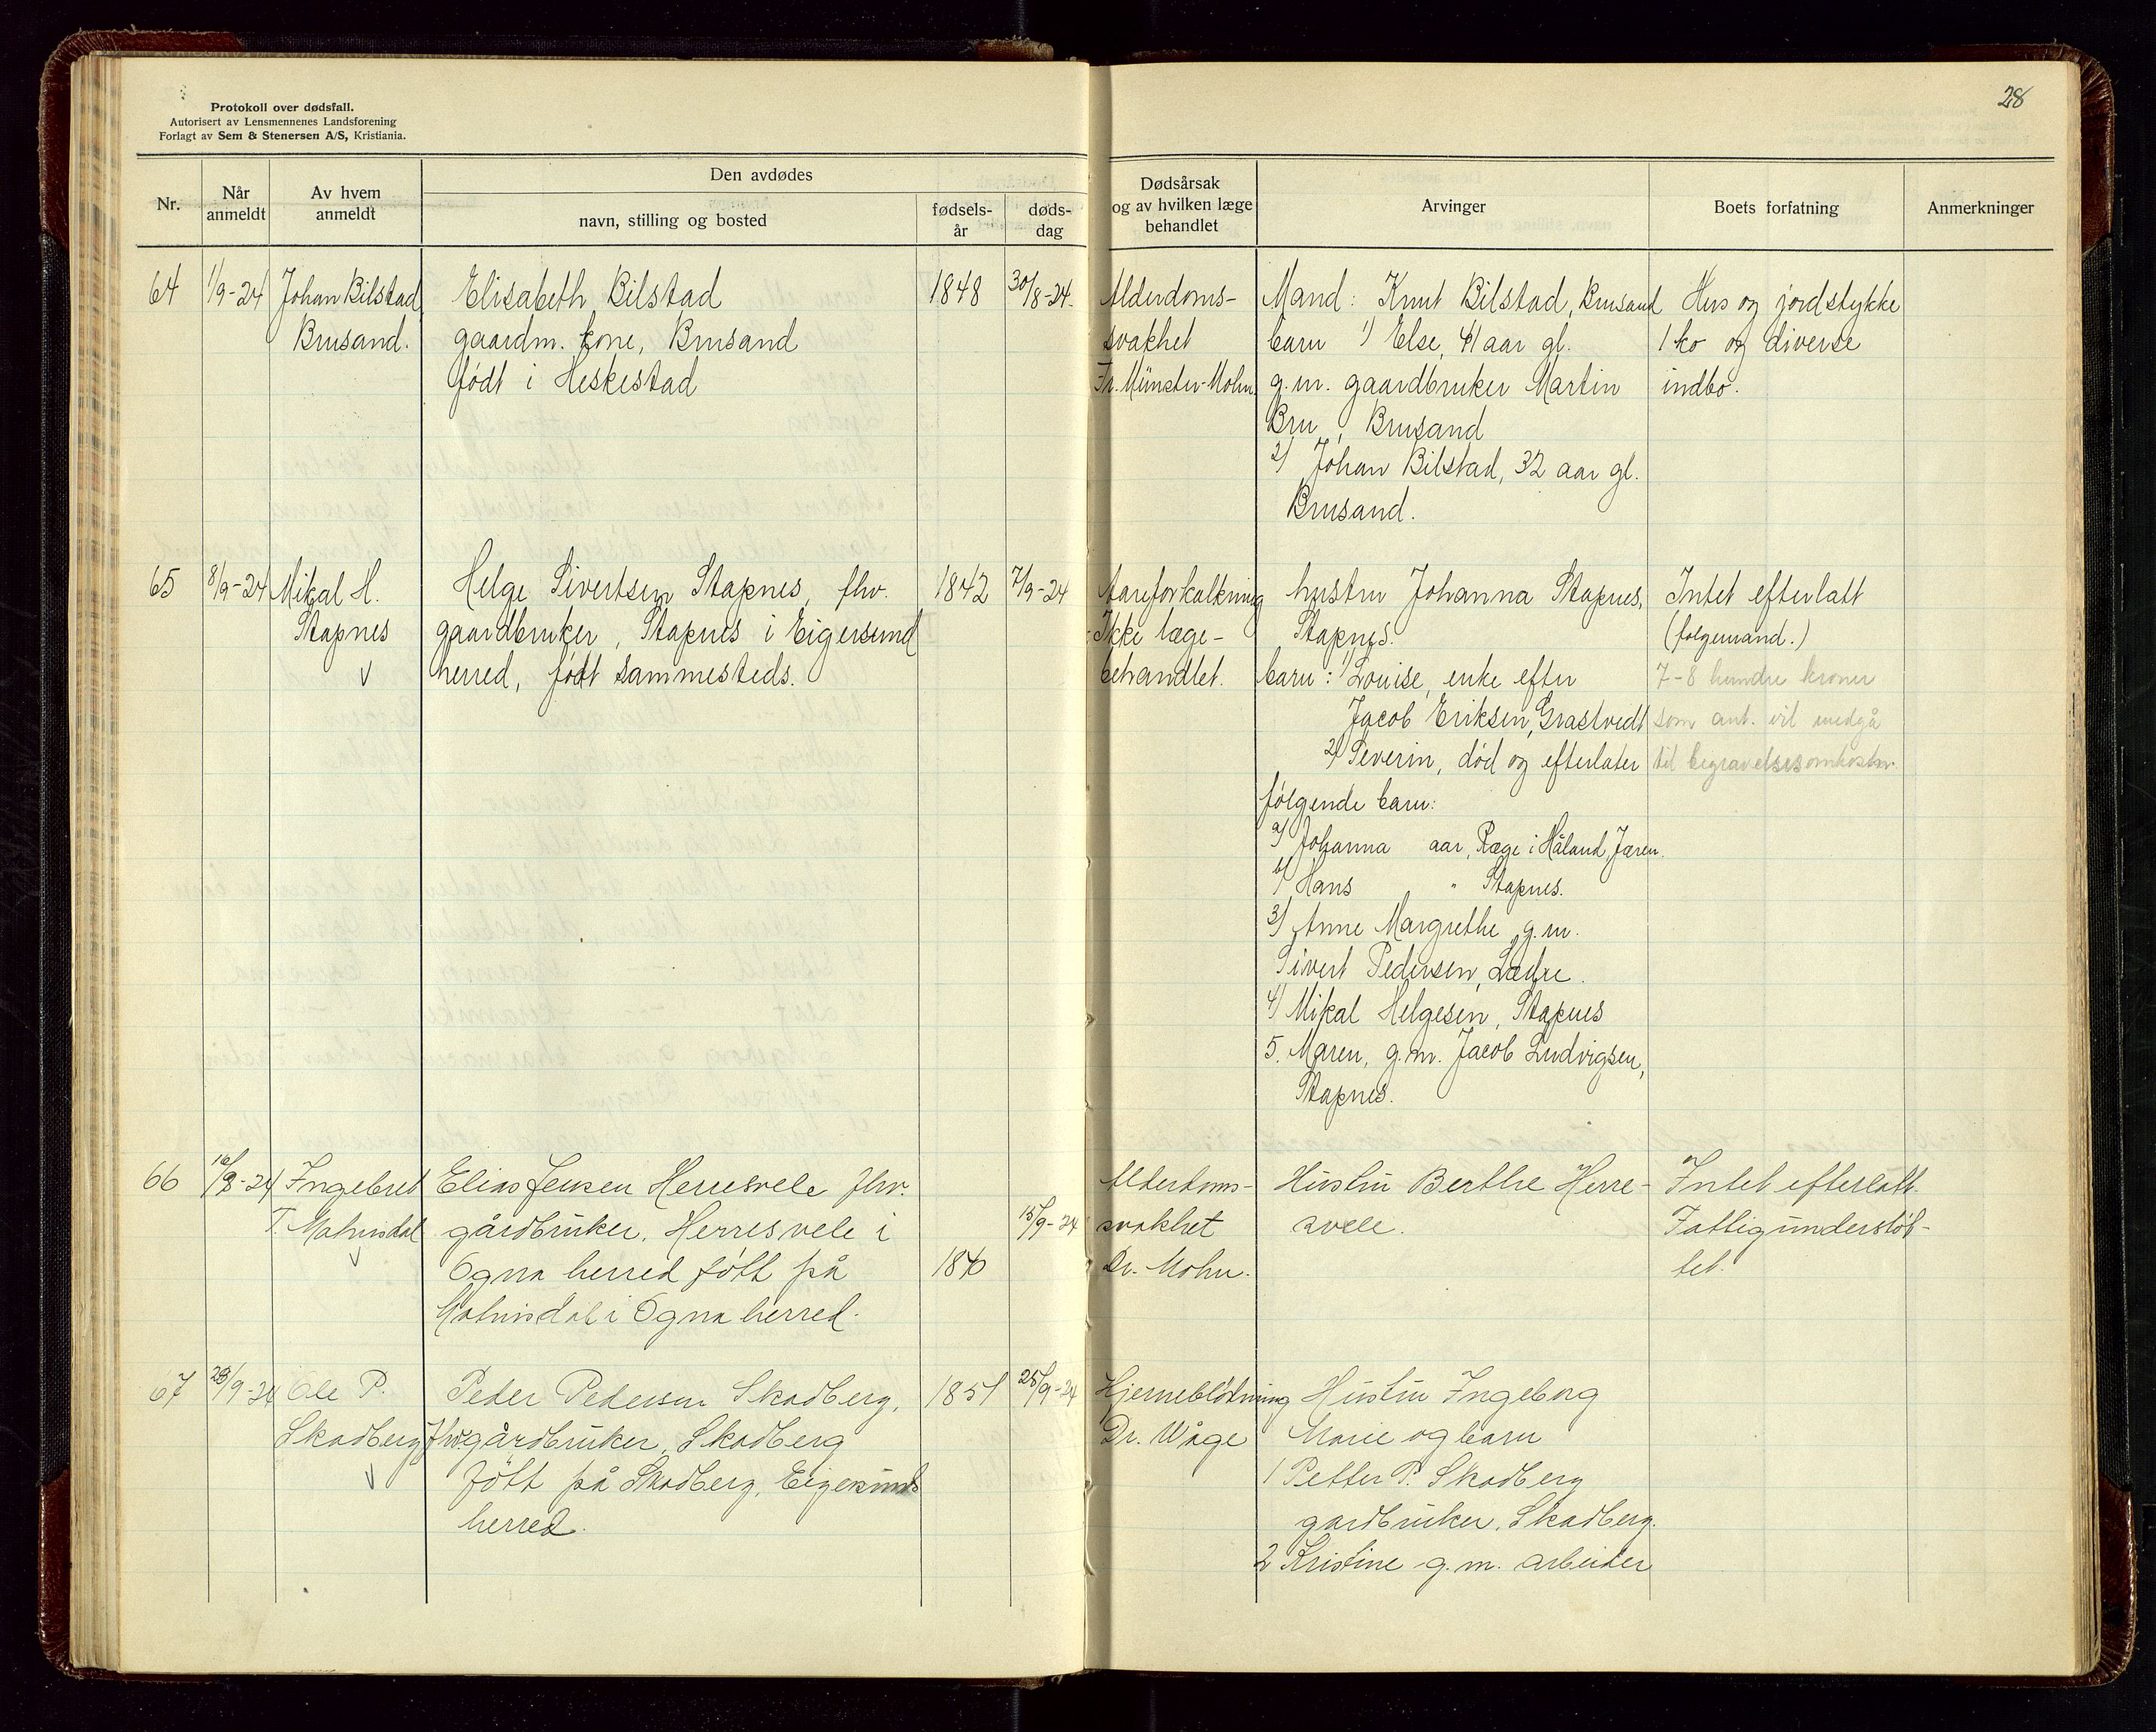 28
Protokoll over dødsfall.
Autorisert av Lensmennenes Landsforening
Forlagt av Sem & Stenersen A/S, Kristiania.
Nr.
Når anmeldt
Av hvem anmeldt
Den avdødes
navn, stilling og bosted
fødsels-år
døds-dag
Dødsårsak og av hvilken læge behandlet
Arvinger
Boets forfatning
Anmerkninger
64
1/9-24
Johan Bilstad
Brusand.
Elisabeth Bilstad
gaardm. kone, Brusand
født i Heskestad
1848
30/8-24.
Alderdoms-
svakhet
Dr. Münster-Mohn.
Mand: Knut Bilstad, Brusand
barn 1) Else, 41 aar gl.
g.m. gaardbruker Martin
Bru, Brusand
2) Johan Bilstad, 32 aar gl.
Brusand.
Hus og jordstykke
1 ko og diverse
indbo.
65
8/9-24
Mikal H.
Stapnes
v
Helge Sivertsen Stapnes, fhv.
gaardbruker, Stapnes i Eigersund
herred, født sammesteds.
1842
7/9-24
Aareforkalkning
Ikke læge-
behandlet.
hustru Johanna Stapnes,
Stapnes.
barn: 1) Louise, enke efter
Jacob Eriksen, Grastvedt
2) Severin, død og efterlater
følgende barn:
a) Johanna aar, Ræge i Håland, Jæren.
b) Hans " Stapnes.
3) Anne Margrethe g.m.
Sivert Pedersen, Lædre.
4) Mikal Helgesen, Stapnes
5. Maren, g.m. Jacob Ludvigsen,
Stapnes.
Intet efterlatt
(følgemand.)
7-8 hundre kroner
som ant. vil medgå
til begravelsesomkostn.
66
16/9-24
Ingebret
T. Matnisdal
v
Elias Jensen Herresvele fhv.
gårdbruker, Herresvele i
Ogna herred født på
Matnisdal i Ogna herred.
1840
15/9-24
Alderdoms-
svakhet
Dr. Mohn.
Hustru Berthe Herre-
svele.
Intet efterlatt.
Fattigunderstøt-
tet.
67
29/9-24
Ole P.
Skadberg
v
Peder Pedersen Skadberg,
fhv gårdbruker, Skadberg
født på Skadberg, Eigersunds
herred.
1851
25/9-24
Hjerneblödning
Dr. Wåge
Hustru Ingeborg
Marie og barn
1 Petter P. Skadberg
gardbruker, Skadberg.
2 Kristine g.m. arbeider